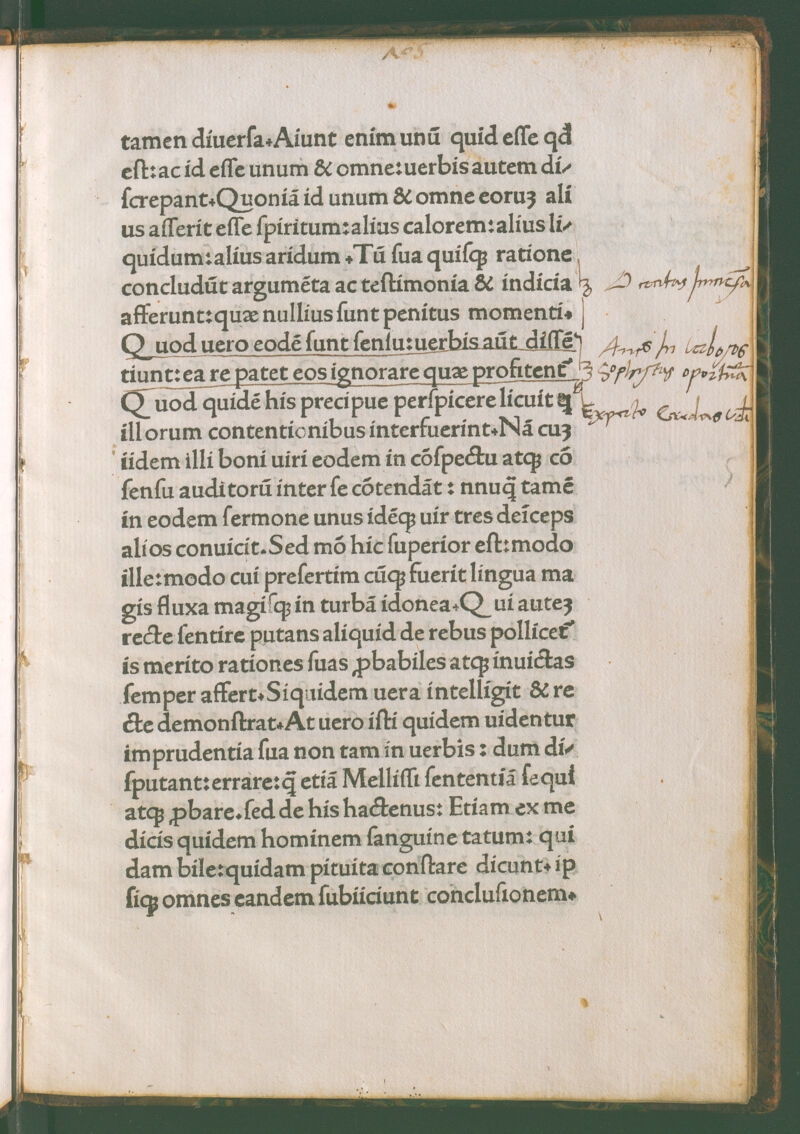 105
tamen diuerſa.Aiunt enim unū quid eſſe qd
eſt:ac id eſſe unum & omne:uerbis autem di-
ſcrepant.Quoniā id unum & omne eoruꝫ ali
us aſſerit eſſe ſpiritum:alius calorem:alius li-
quidum:alius aridum .Tū ſua quiſqꝫ ratione
concludūt argumēta ac teſtimonia & indicia
afferunt:quæ nullius ſunt penitus momenti.
Quod uero eodē ſunt ſenſu:uerbis aūt diſſē
tiunt:ea re patet eos ignorare quæ profitent᷑
Quod quidē his precipue perſpicere licuit q
illorum contentionibus interfuerint.Nā cuꝫ
iidem illi boni uiri eodem in cōſpectu atqꝫ cō
ſenſu auditorū inter ſe cōtendāt : nnuq̄ tamē
in eodem ſermone unus idēqꝫ uir tres deīceps
alios conuicit.Sed mō hic ſuperior eſt:modo
ille:modo cui preſertim cūqꝫ fuerit lingua ma
gis fluxa magiſqꝫ in turbā idonea.Qui auteꝫ
recte ſentire putans aliquid de rebus pollicet᷑
is merito rationes ſuas ꝓbabiles atqꝫ inuictas
ſemper affert.Siquidem uera intelligit & re
cte demonſtrat.At uero iſti quidem uidentur
imprudentia ſua non tam in uerbis : dum di-
ſputant:errare:q̄ etiā Melliſſi ſententiā ſequi
atqꝫ ꝓbare.ſed de his hactenus: Etiam ex me
dicis quidem hominem ſanguine tatum: qui
dam bile:quidam pituita conſtare dicunt. ip
ſiqꝫ omnes eandem ſubiiciunt concluſionem.